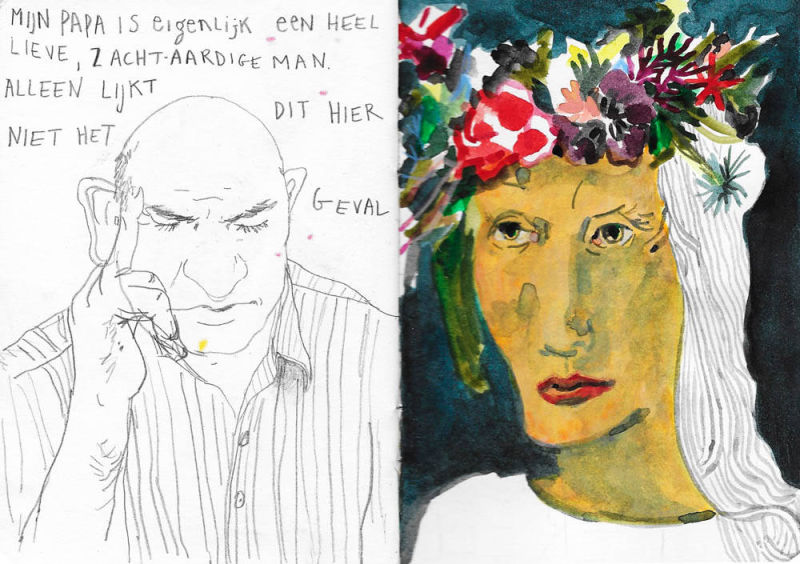 MIJN PAPA IS eigenlijk een HEEL
LIEVE, ZACHT-AARDIGE MAN.
ALLEEN LIJKT DIT HIER
NIET HET GEVAL